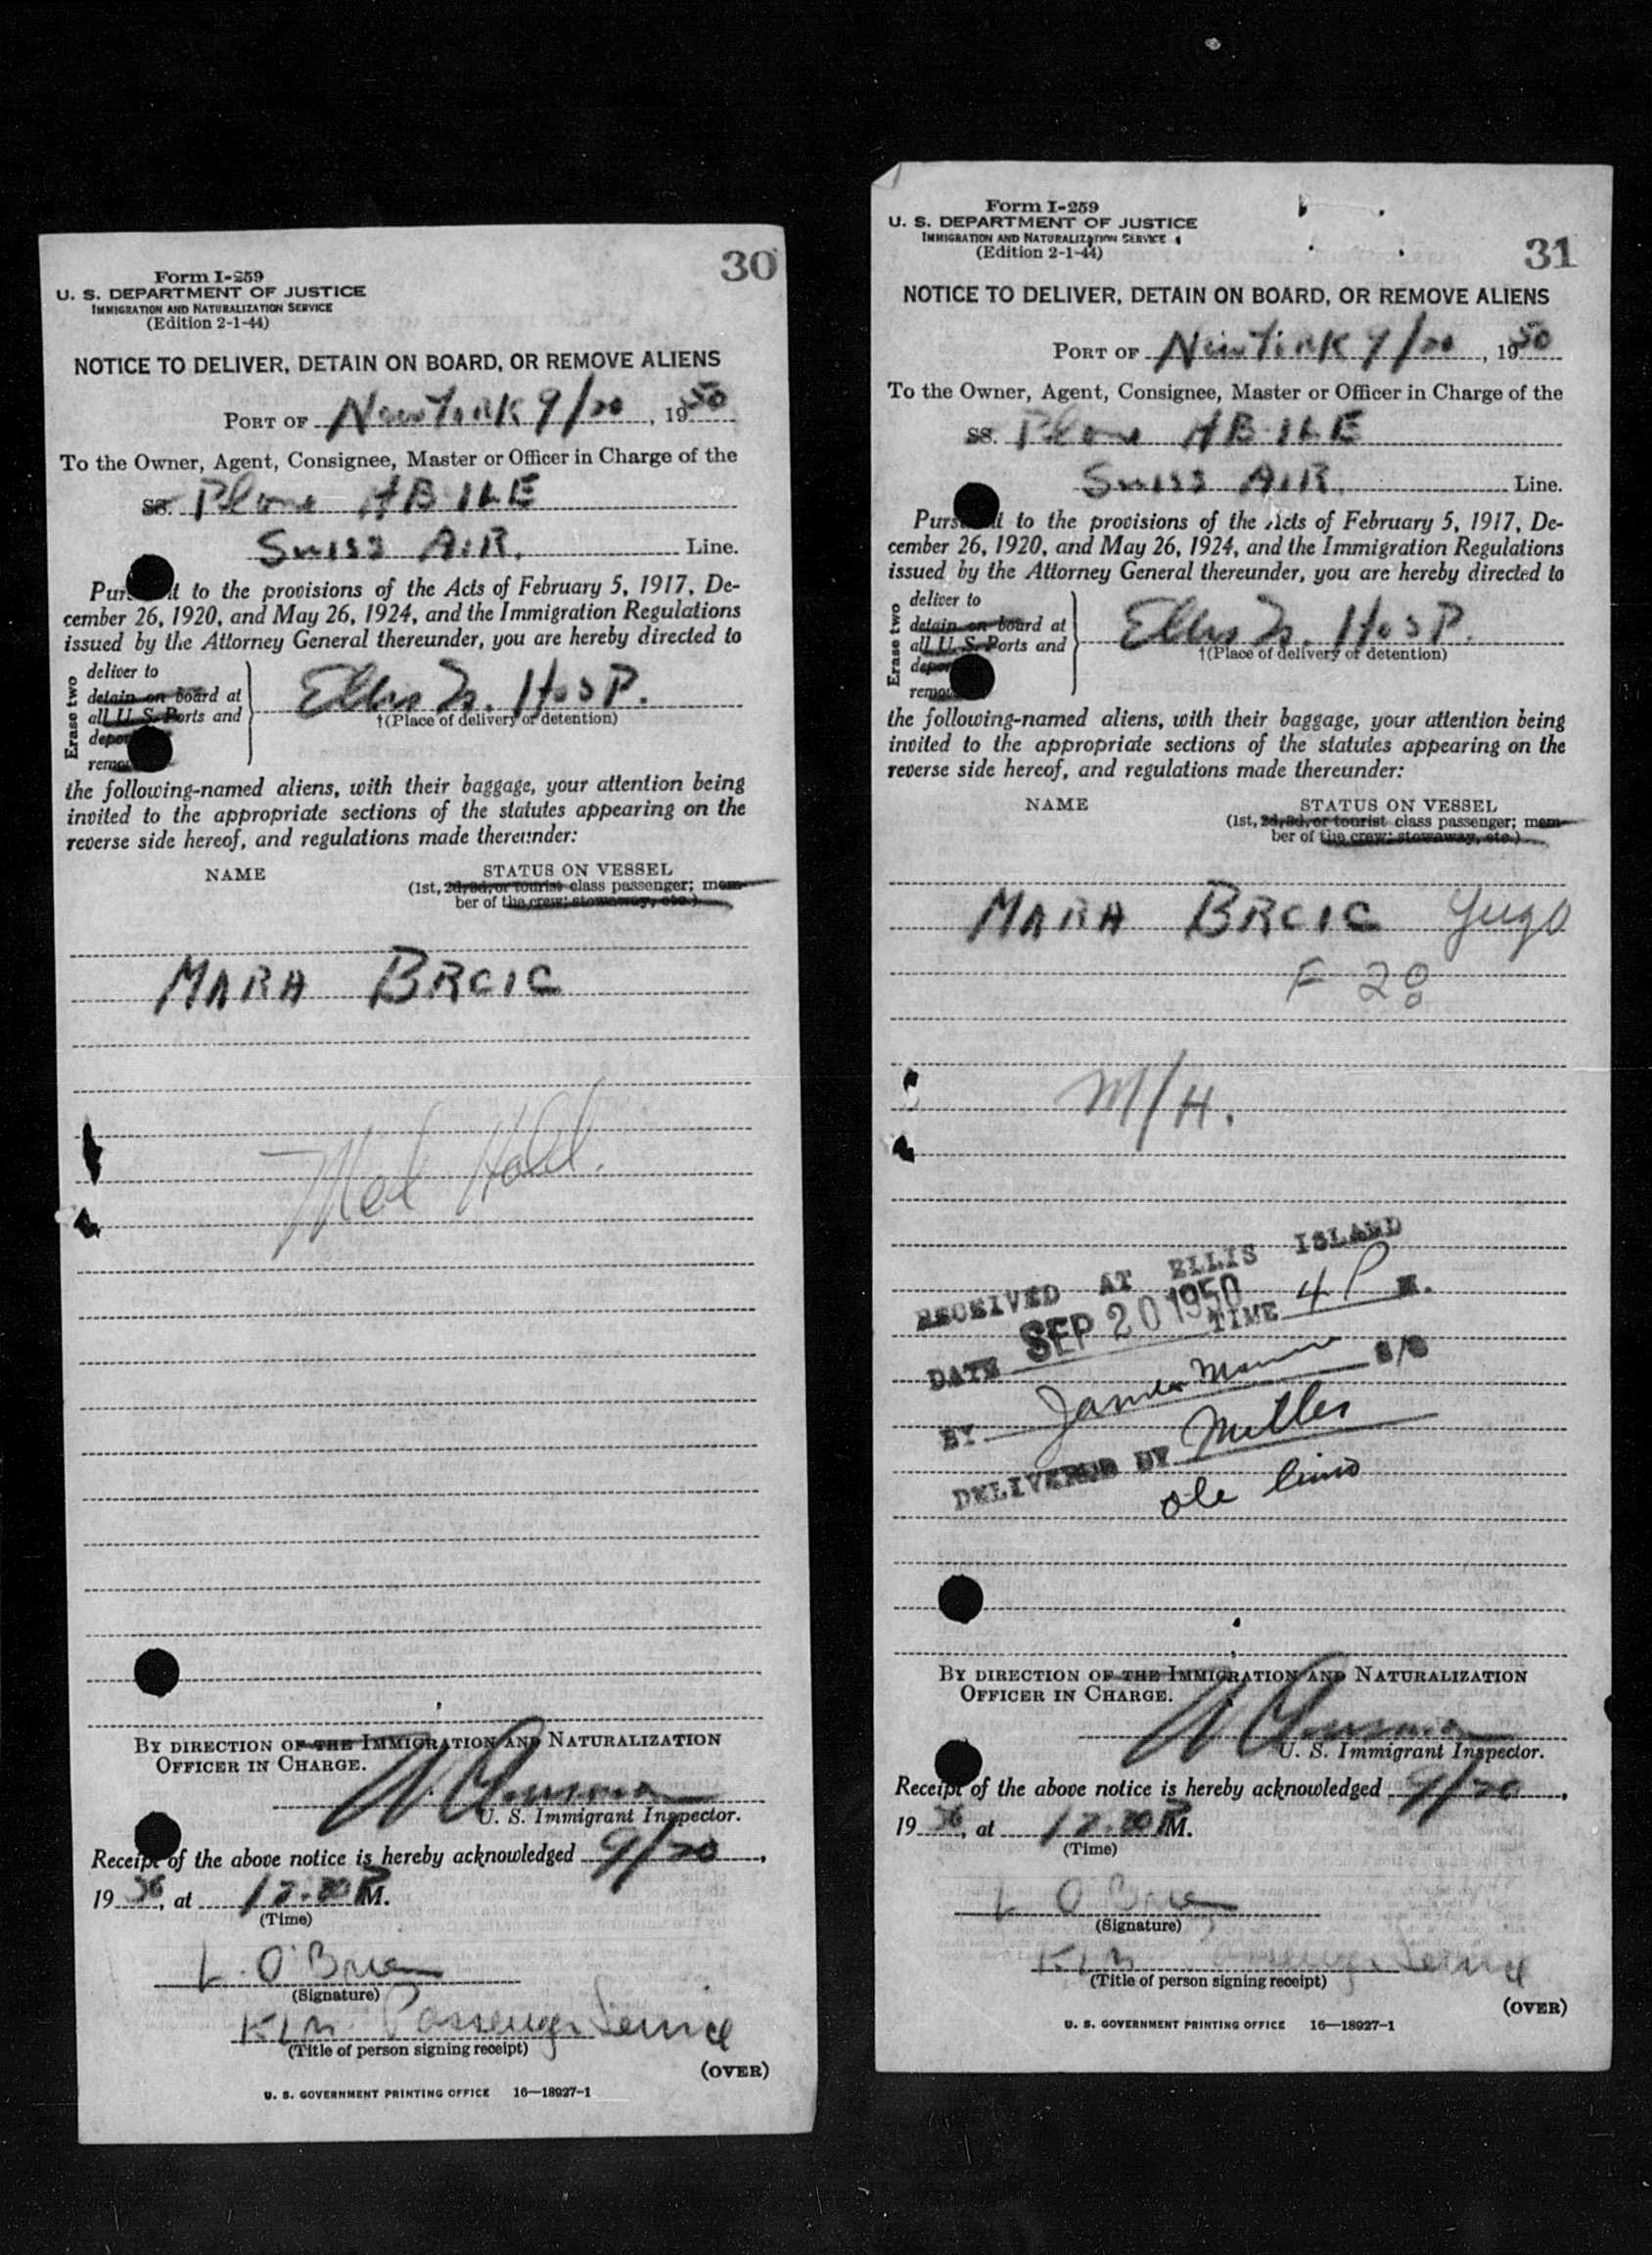 30
Form I-259
U. S. DEPARTMENT OF JUSTICE
IMMIGRATION AND NATURALIZATION SERVICE
(Edition 2-1-44)
NOTICE TO DELIVER, DETAIN ON BOARD, OR REMOVE ALIENS
PORT OF New York 9/20, 1950
To the Owner, Agent, Consignee, Master or Officer in Charge of the
SS. Plane HBILE
Swiss AIR. Line.
Pursuant to the provisions of the Acts of February 5, 1917, De-
cember 26, 1920, and May 26, 1924, and the Immigration Regulations
issued by the Attorney General thereunder, you are hereby directed to
Erase two
deliver to
detain on board at
all U. S. Ports and
depo
remo
Ellis Is. Hosp.
†(Place of delivery or detention)
the following-named aliens, with their baggage, your attention being
invited to the appropriate sections of the statutes appearing on the
reverse side hereof, and regulations made thereunder:
NAME STATUS ON VESSEL
(1st, 2d, 3d, or tourist class passenger; mem-
ber of the crew; stowaway, etc.)
MARA BRCIC
Med Hold.
BY DIRECTION OF THE IMMIGRATION AND NATURALIZATION
OFFICER IN CHARGE.
U. S. Immigrant Inspector.
Receipt of the above notice is hereby acknowledged 9/20,
1950, at 12:30 P M.
(Time)
L. O'Brien
(Signature)
KLM Passenger Service
(Title of person signing receipt)
(OVER)
U. S. GOVERNMENT PRINTING OFFICE 16—18927-1
31
Form I-259
U. S. DEPARTMENT OF JUSTICE
IMMIGRATION AND NATURALIZATION SERVICE
(Edition 2-1-44)
NOTICE TO DELIVER, DETAIN ON BOARD, OR REMOVE ALIENS
PORT OF New York 9/20, 1950
To the Owner, Agent, Consignee, Master or Officer in Charge of the
SS. Plane HBILE
Swiss AIR. Line.
Pursuant to the provisions of the Acts of February 5, 1917, De-
cember 26, 1920, and May 26, 1924, and the Immigration Regulations
issued by the Attorney General thereunder, you are hereby directed to
Erase two
deliver to
detain on board at
all U. S. Ports and
depo
remo
Ellis Is. Hosp.
†(Place of delivery or detention)
the following-named aliens, with their baggage, your attention being
invited to the appropriate sections of the statutes appearing on the
reverse side hereof, and regulations made thereunder:
NAME STATUS ON VESSEL
(1st, 2d, 3d, or tourist class passenger; mem-
ber of the crew; stowaway, etc.)
MARA BRCIC Yugo
F 28
M/H.
RECEIVED AT ELLIS ISLAND
DATE SEP 20 1950 TIME 4 P M.
BY James
DELIVERED BY Miller
BY DIRECTION OF THE IMMIGRATION AND NATURALIZATION
OFFICER IN CHARGE.
U. S. Immigrant Inspector.
Receipt of the above notice is hereby acknowledged 9/20,
1950, at 12:30 P M.
(Time)
L O'Brien
(Signature)
KLM Passenger Service
(Title of person signing receipt)
(OVER)
U. S. GOVERNMENT PRINTING OFFICE 16—18927-1